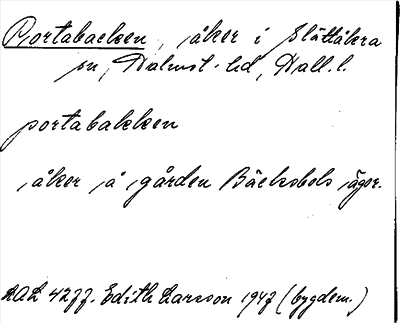 Portabacken, åker i Slättåkra
sn, Halmst. hd, Hall. l.
portabakken
åker på gården Bäcksbols ägor.
4277. Edith Larsson 1947 (bygdem.)